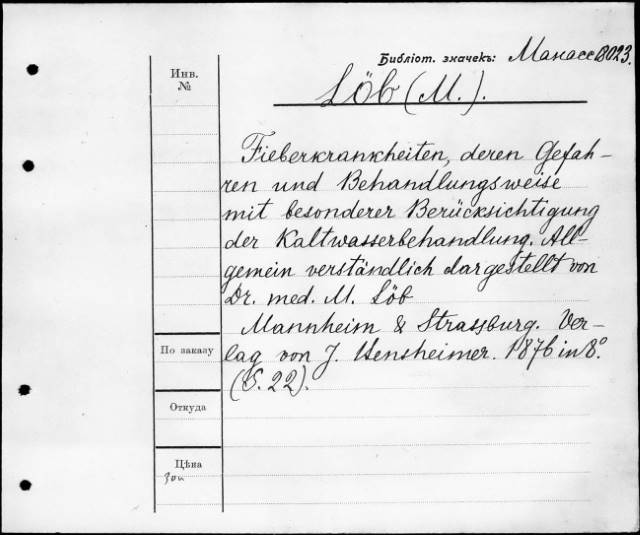 Библіот. значекъ: Манассе 3023.
Инв.
№
Löb (M.).
Fieberkrankheiten, deren Gefah-
ren und Behandlungsweise
mit besonderer Berücksichtigung
der Kaltwasserbehandlung. All-
gemein verständlich dargestellt von
Dr. med. M. Löb
Mannheim & Strassburg. Ver-
По заказу
lag von J. Bensheimer. 1876 in 8°.
(S. 22).
Откуда
Цѣна